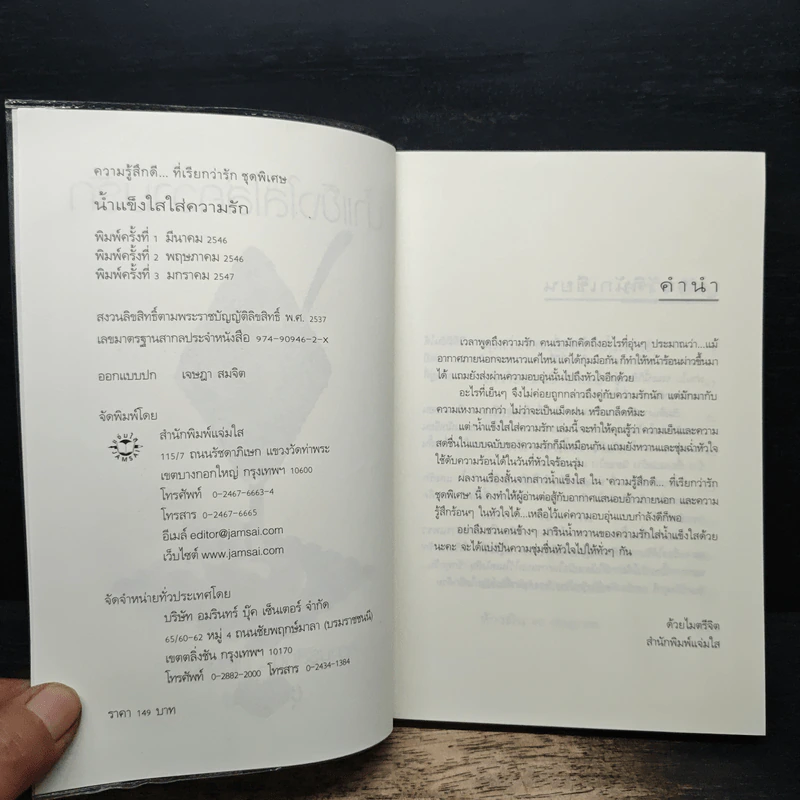 ความรู้สึกดี... ที่เรียกว่ารัก ชุดพิเศษ
น้ำแข็งใสใส่ความรัก
พิมพ์ครั้งที่ 1 มีนาคม 2546
พิมพ์ครั้งที่ 2 พฤษภาคม 2546
พิมพ์ครั้งที่ 3 มกราคม 2547
สงวนลิขสิทธิ์ตามพระราชบัญญัติลิขสิทธิ์ พ.ศ. 2537
เลขมาตรฐานสากลประจำหนังสือ 974-90946-2-x
ออกแบบปก เจษฎา สมจิต
จัดพิมพ์โดย
สำนักพิมพ์แจ่มใส
115/7 ถนนรัชดาภิเษก แขวงวัดท่าพระ
เขตบางกอกใหญ่ กรุงเทพฯ 10600
โทรศัพท์ 0-2467-6663-4
โทรสาร 0-2467-6665
อีเมล์ editor@jamsai.com
เว็บไซต์ www.jamsai.com
จัดจำหน่ายทั่วประเทศโดย
บริษัท อมรินทร์ บุ๊ค เซ็นเตอร์ จำกัด
65/60-62 หมู่ 4 ถนนชัยพฤกษ์มาลา (บรมราชชนนี)
เขตตลิ่งชัน กรุงเทพฯ 10170
โทรศัพท์ 0-2882-2000 โทรสาร 0-2434-1384
ราคา 149 บาท
คำนำ
เวลาพูดถึงความรัก คนเรามักคิดถึงอะไรที่อุ่นๆ ประมาณว่า...แม้
อากาศภายนอกจะหนาวแค่ไหน แค่ได้กุมมือกัน ก็ทำให้หน้าร้อนผ่าวขึ้นมา
ได้ แถมยังส่งผ่านความอบอุ่นนั้นไปถึงหัวใจอีกด้วย
อะไรที่เย็นๆ จึงไม่ค่อยถูกกล่าวถึงคู่กับความรักนัก แต่มักมากับ
ความเหงามากกว่า ไม่ว่าจะเป็นเม็ดฝน หรือเกล็ดหิมะ
แต่ 'น้ำแข็งใสใส่ความรัก' เล่มนี้ จะทำให้คุณรู้ว่า ความเย็นและความ
สดชื่นในแบบฉบับของความรักก็มีเหมือนกัน แถมยังหวานและชุ่มฉ่ำหัวใจ
ใช้ดับความร้อนได้ในวันที่หัวใจร้อนรุ่ม
ผลงานเรื่องสั้นจากสาวน้ำแข็งใส ใน 'ความรู้สึกดี... ที่เรียกว่ารัก
ชุดพิเศษ' นี้ คงทำให้ผู้อ่านต่อสู้กับอากาศแสนอบอ้าวภายนอก และความ
รู้สึกร้อนๆ ในหัวใจได้...เหลือไว้แค่ความอบอุ่นแบบกำลังดีก็พอ
อย่าลืมชวนคนข้างๆ มารินน้ำหวานของความรักใส่น้ำแข็งใสด้วย
นะคะ จะได้แบ่งปันความชุ่มชื่นหัวใจไปให้ทั่วๆ กัน
ด้วยไมตรีจิต
สำนักพิมพ์แจ่มใส